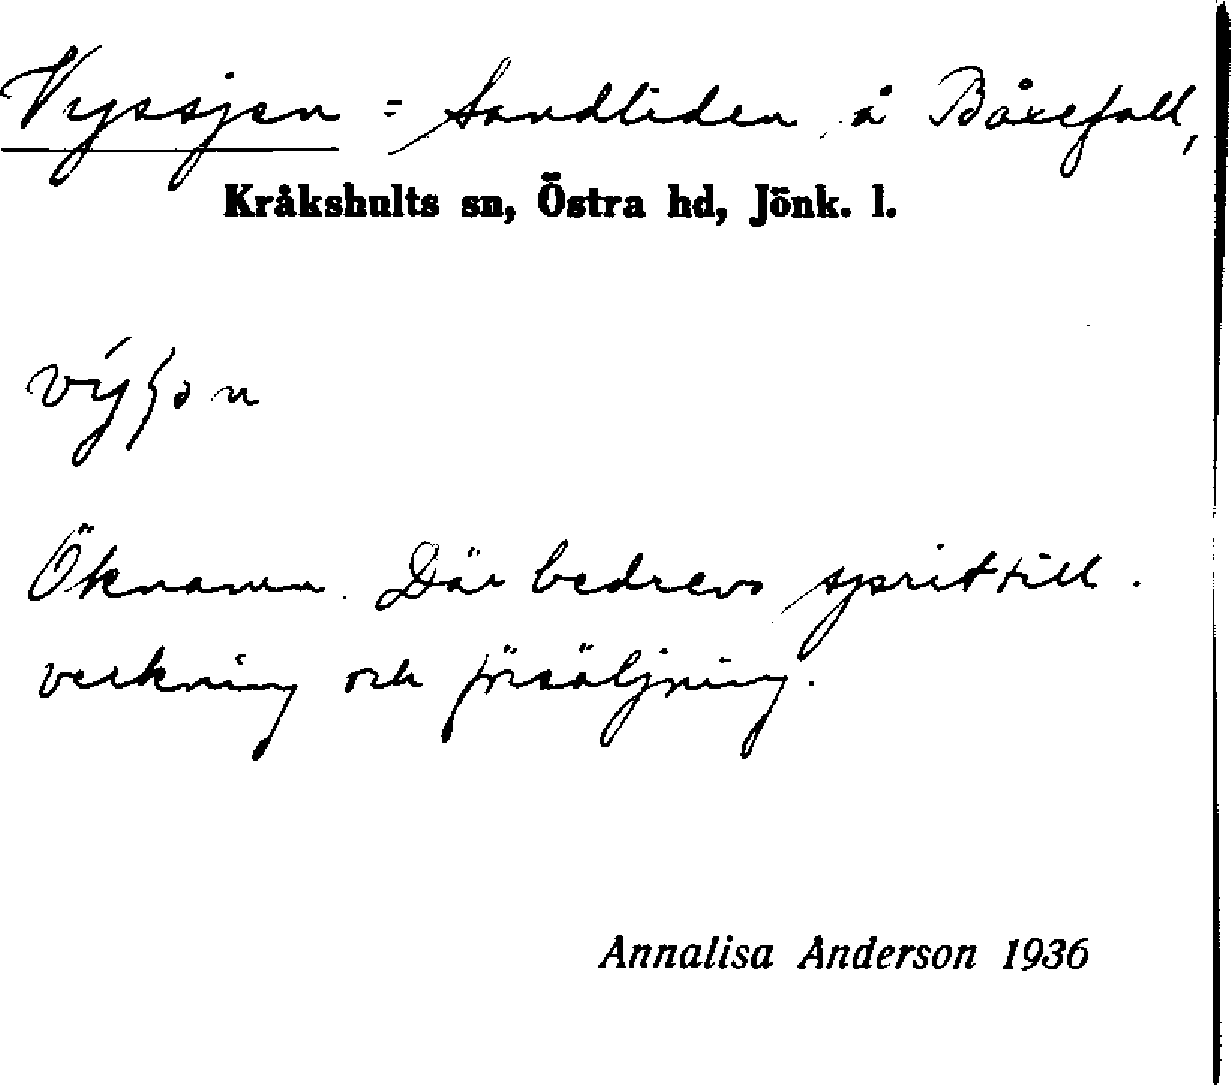 Vyssjen = Sandliden å Båxefall,
Kråkshults sn, Östra hd, Jönk. l.
Öknamn. Där bedrevs sprittill-
verkning och försäljning.
Annalisa Anderson 1936